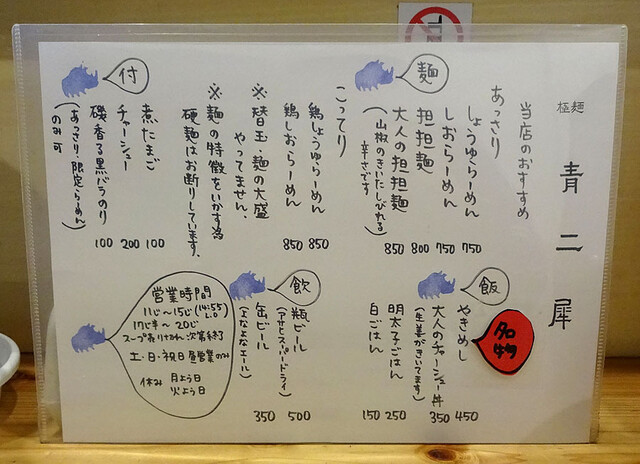 極麺 青二犀
当店のおすすめ
麺
あっさり
しょうゆらーめん 750
しおらーめん 750
担担麺 800
大人の担担麺 850
(山椒のきいたしびれる
辛さです)
こってり
鶏しょうゆらーめん 850
鶏しおらーめん 850
※替玉、麺の大盛
やってません。
※麺の特徴をいかす為
硬麺はお断りしています。
付
煮たまご 100
チャーシュー 200
磯香る黒バラのり 100
(あっさり・限定らーめん
のみ可)
飯
名物
やきめし 450
大人のチャーシュー丼 350
(生姜がきいてます)
明太子ごはん 250
白ごはん 150
飲
瓶ビール 500
(アサヒスーパードライ)
缶ビール 350
(よなよなエール)
営業時間
11じ〜15じ(14:55 L.O)
17じ半〜20じ
スープ売り切れ次第終了
土・日・祝日 昼営業のみ
休み 月よう日
火よう日